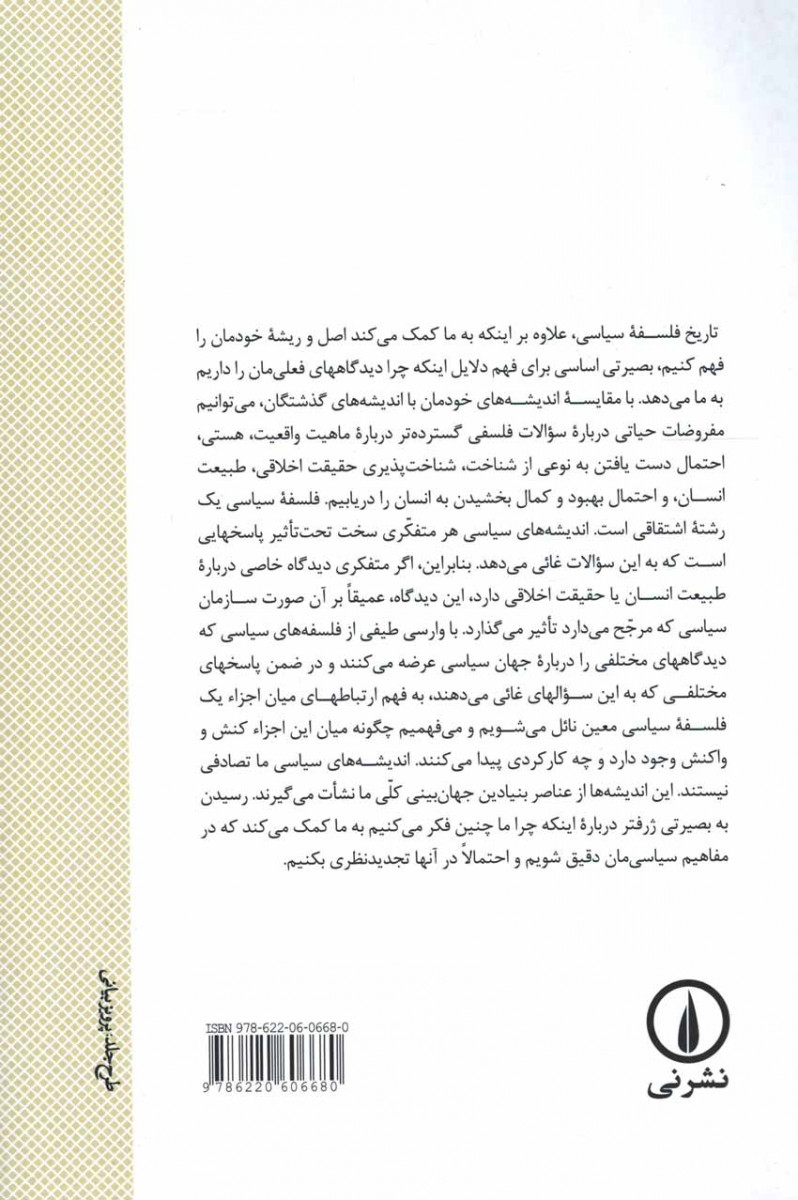 تاریخ فلسفهٔ سیاسی، علاوه بر اینکه به ما کمک می‌کند اصل و ریشهٔ خودمان را
فهم کنیم، بصیرتی اساسی برای فهم دلایل اینکه چرا دیدگاههای فعلی‌مان را داریم
به ما می‌دهد. با مقایسهٔ اندیشه‌های خودمان با اندیشه‌های گذشتگان، می‌توانیم
مفروضات حیاتی دربارهٔ سؤالات فلسفی گسترده‌تر دربارهٔ ماهیت واقعیت، هستی،
احتمال دست یافتن به نوعی از شناخت، شناخت‌پذیری حقیقت اخلاقی، طبیعت
انسان، و احتمال بهبود و کمال بخشیدن به انسان را دریابیم. فلسفهٔ سیاسی یک
رشتهٔ اشتقاقی است. اندیشه‌های سیاسی هر متفکّری سخت تحت‌تأثیر پاسخهایی
است که به این سؤالات غائی می‌دهد. بنابراین، اگر متفکری دیدگاه خاصی دربارهٔ
طبیعت انسان یا حقیقت اخلاقی دارد، این دیدگاه، عمیقاً بر آن صورت سازمان
سیاسی که مرجّح می‌دارد تأثیر می‌گذارد. با وارسی طیفی از فلسفه‌های سیاسی که
دیدگاههای مختلفی را دربارهٔ جهان سیاسی عرضه می‌کنند و در ضمن پاسخهای
مختلفی که به این سؤالهای غائی می‌دهند، به فهم ارتباطهای میان اجزاء یک
فلسفهٔ سیاسی معین نائل می‌شویم و می‌فهمیم چگونه میان این اجزاء کنش و
واکنش وجود دارد و چه کارکردی پیدا می‌کنند. اندیشه‌های سیاسی ما تصادفی
نیستند. این اندیشه‌ها از عناصر بنیادین جهان‌بینی کلّی ما نشأت می‌گیرند. رسیدن
به بصیرتی ژرفتر دربارهٔ اینکه چرا ما چنین فکر می‌کنیم به ما کمک می‌کند که در
مفاهیم سیاسی‌مان دقیق شویم و احتمالاً در آنها تجدیدنظری بکنیم.
طرح جلد: پرویز بیانی
ISBN 978-622-06-0668-0
9 786220 606680
نشرنی